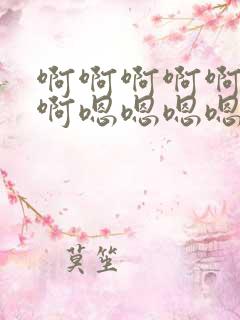 啊啊啊啊啊
啊嗯嗯嗯嗯
莫笙